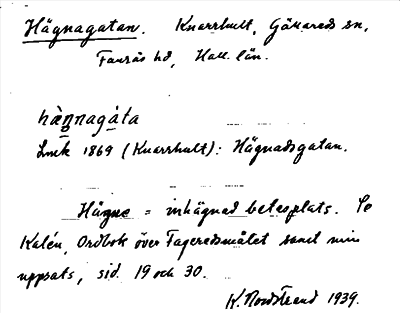 Hägnagatan. Knarrhult, Gällareds sn,
Faurås hd, Hall. län.
hàn̲nagáta
Lmk 1869 (Knarrhult): Hägnadsgatan.
Hägne = inhägnad betesplats. Se
Kalén, Ordbok över Fageredsmålet samt min
uppsats, sid. 19 och 30.
K. Nordstrand 1939.